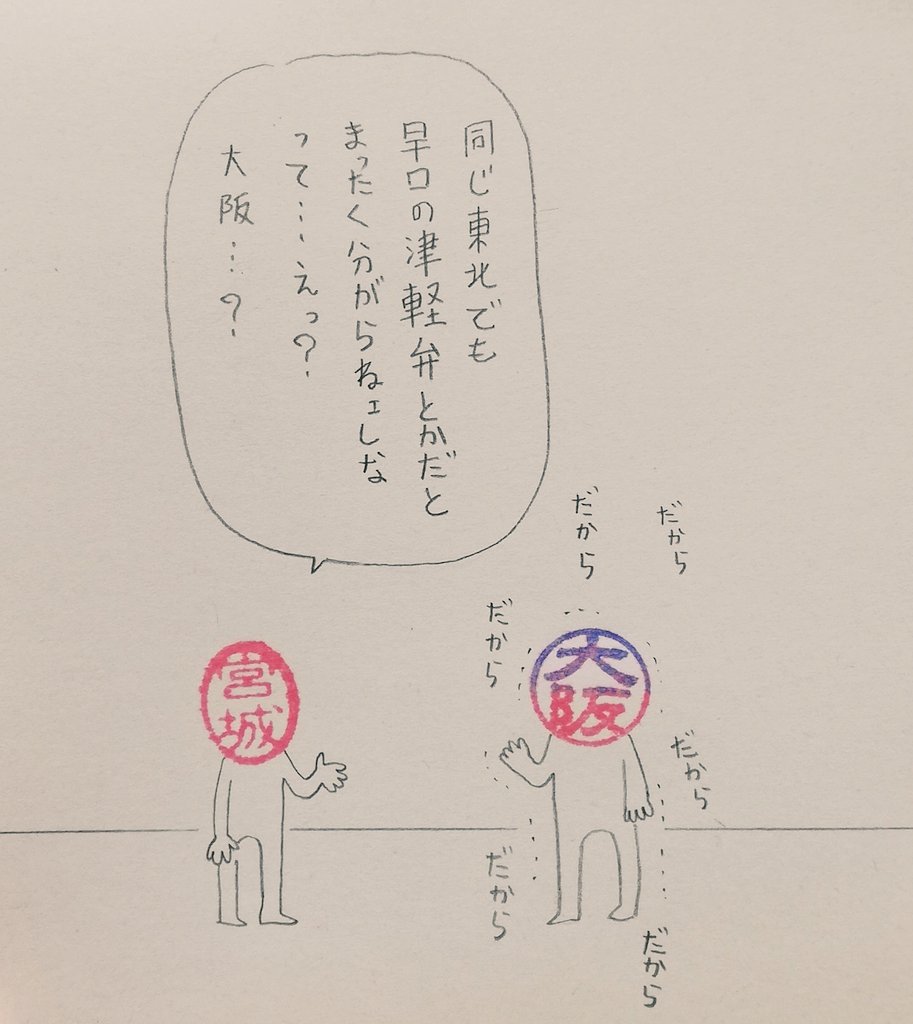 同じ東北でも
早口の津軽弁とかだと
まったく分がらねェしな
って…えっ？
大阪…？
だから
だから
だから
宮城
大阪
だから
だから
だから